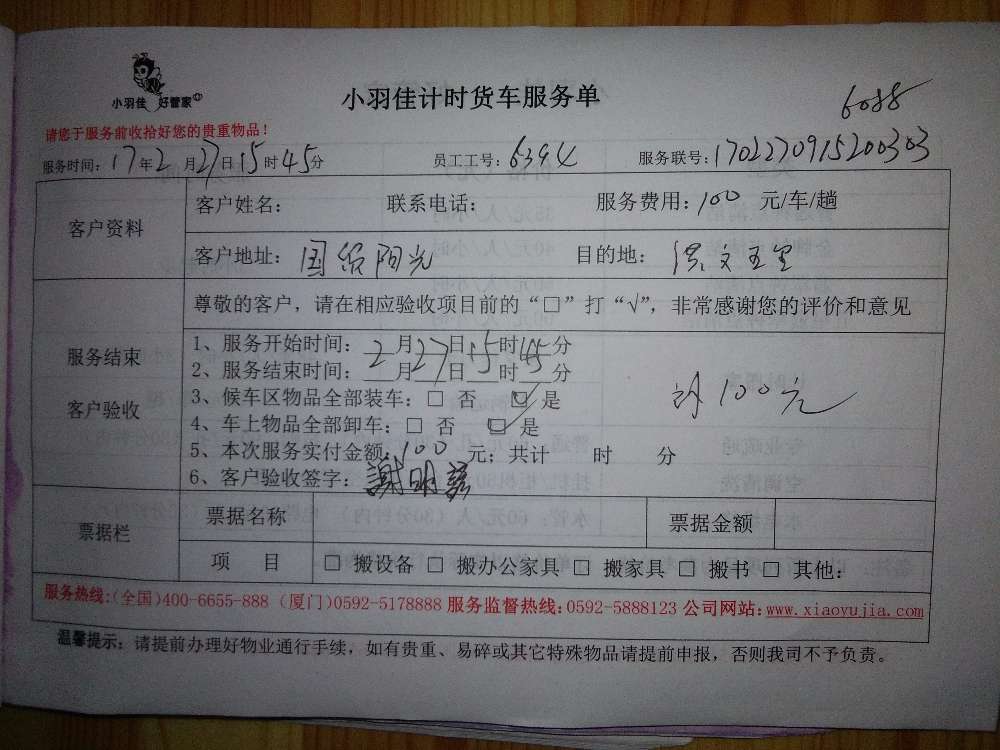 小羽佳 好管家
小羽佳计时货车服务单
6088
请您于服务前收拾好您的贵重物品!
服务时间:17年2月27日15时45分 员工工号:6394 服务联号:1702270915200303
客户资料
客户姓名: 联系电话: 服务费用:100 元/车/趟
客户地址: 国贸阳光 目的地: 洪文五里
服务结束
客户验收
尊敬的客户,请在相应验收项目前的“□”打“√”,非常感谢您的评价和意见
1、服务开始时间:2月27日15时45分
2、服务结束时间:__月__日__时__分
3、候车区物品全部装车:□ 否 ☑ 是
4、车上物品全部卸车:□ 否 ☑ 是
5、本次服务实付金额:100 元;共计 时 分
6、客户验收签字:謝明
100元
票据栏
票据名称 票据金额
项 目 □ 搬设备 □ 搬办公家具 □ 搬家具 □ 搬书 □ 其他:
服务热线:(全国)400-6655-888 (厦门)0592-5178888 服务监督热线:0592-5888123 公司网站:www.xiaoyujia.com
温馨提示:请提前办理好物业通行手续,如有贵重、易碎或其它特殊物品请提前申报,否则我司不予负责。